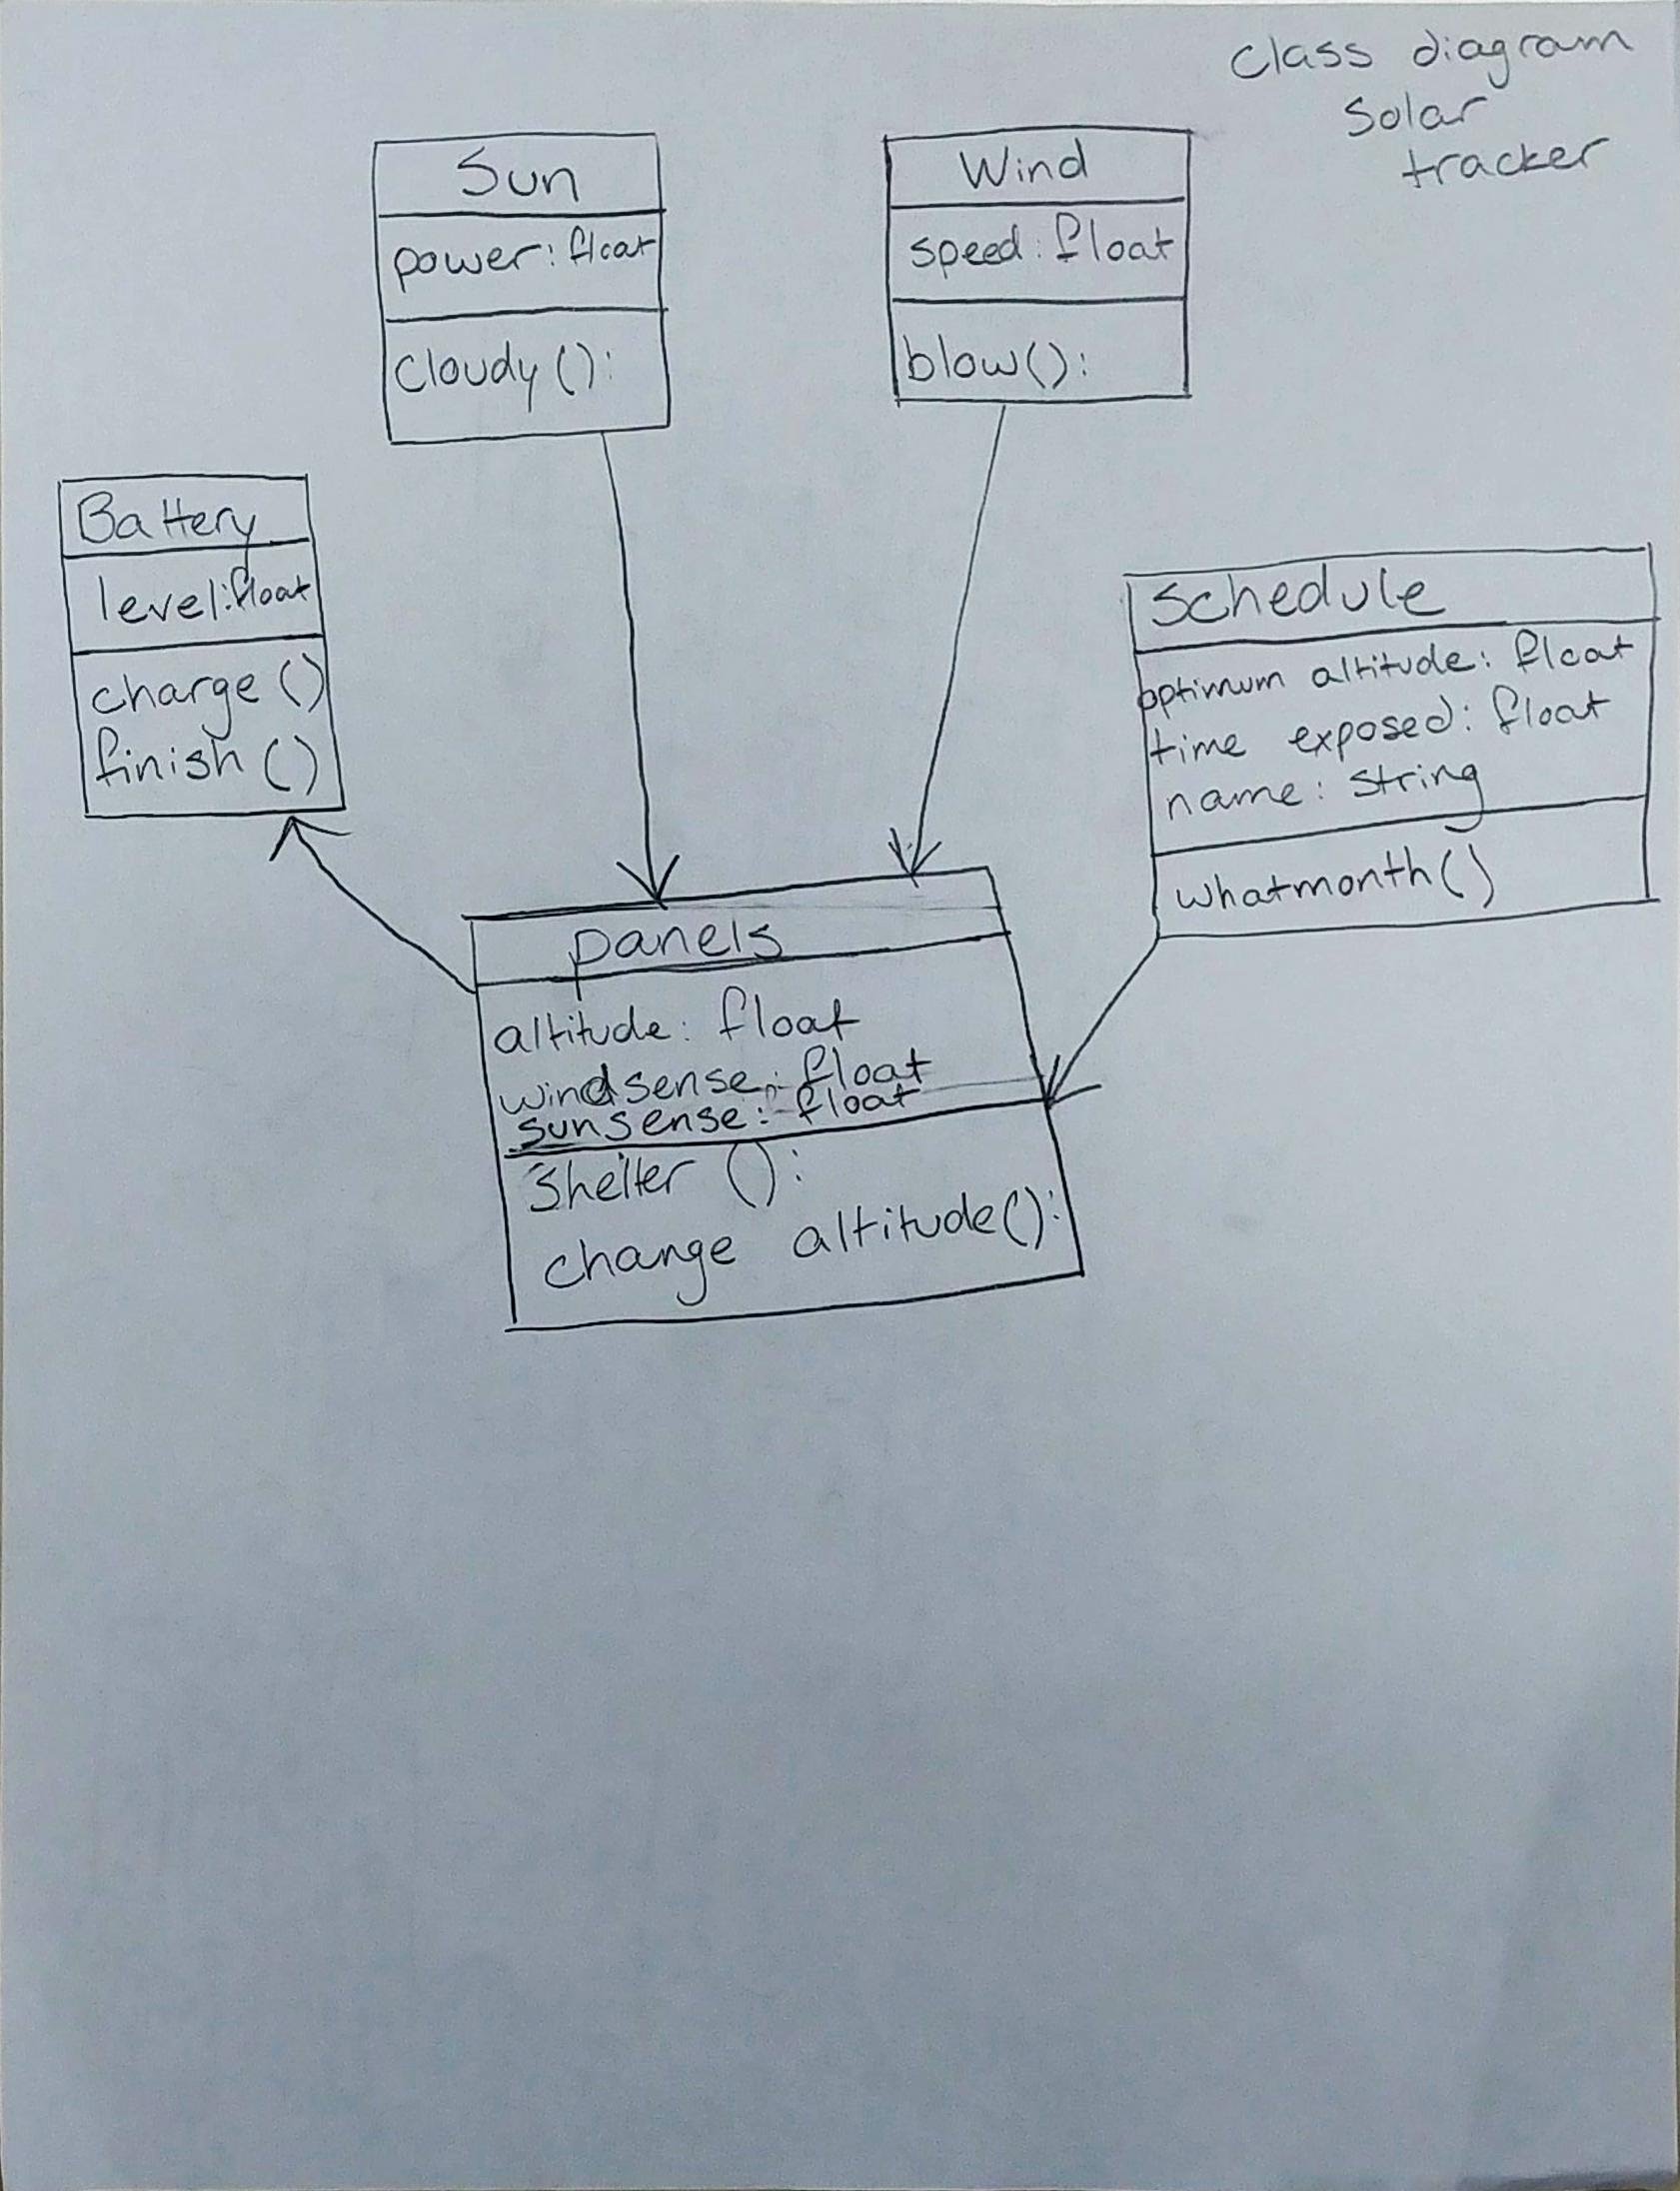 class diagram
solar
tracker
Sun
power: float
cloudy():
Wind
speed: float
blow():
Battery
level: float
charge()
finish()
schedule
optimum altitude: float
time exposed: float
name: string
whatmonth()
panels
altitude: float
windsense: float
sunsense: float
shelter ():
change altitude():